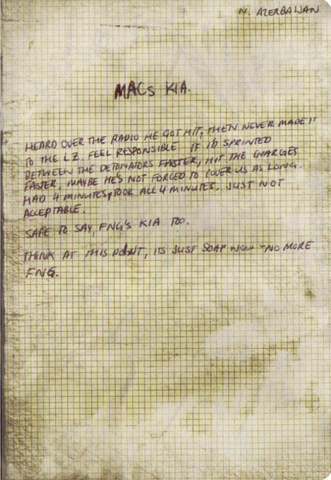 N. AZERBAIJAN
MACS KIA.
HEARD OVER THE RADIO HE GOT HIT, THEN NEVER MADE IT
TO THE LZ. FEEL RESPONSIBLE. IF I'D SPRINTED
BETWEEN THE DETONATORS FASTER, HIT THE CHARGES
FASTER, MAYBE HE'S NOT FORCED TO COVER US AS LONG.
HAD 4 MINUTES, TOOK ALL 4 MINUTES. JUST NOT
ACCEPTABLE.
SAFE TO SAY, FNG'S KIA TOO.
THINK AT THIS POINT, ITS JUST SOAP NOW - NO MORE
FNG.